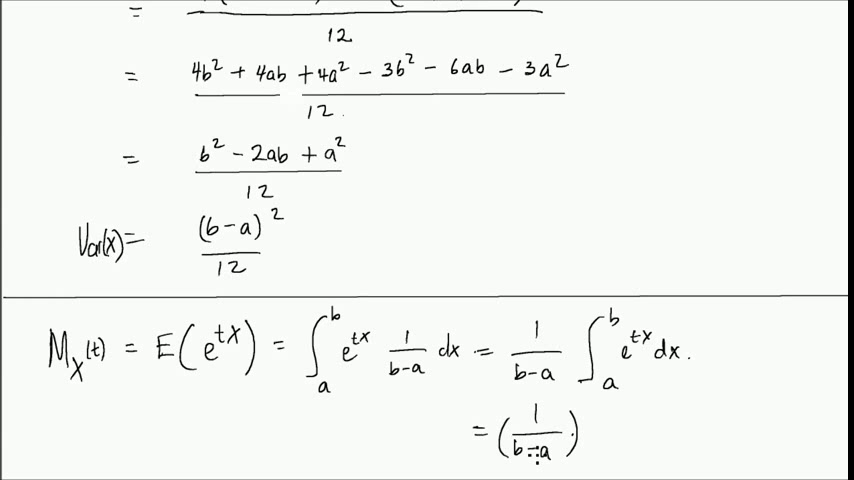 =
12
= 4b² + 4ab + 4a² − 3b² − 6ab − 3a²
12.
= b² − 2ab + a²
12
Var(X) = (b−a)²
12
M_X(t) = E(e^{tX}) = ∫_a^b e^{tx} 1/(b−a) dx = 1/(b−a) ∫_a^b e^{tx} dx.
= (1/(b−a))